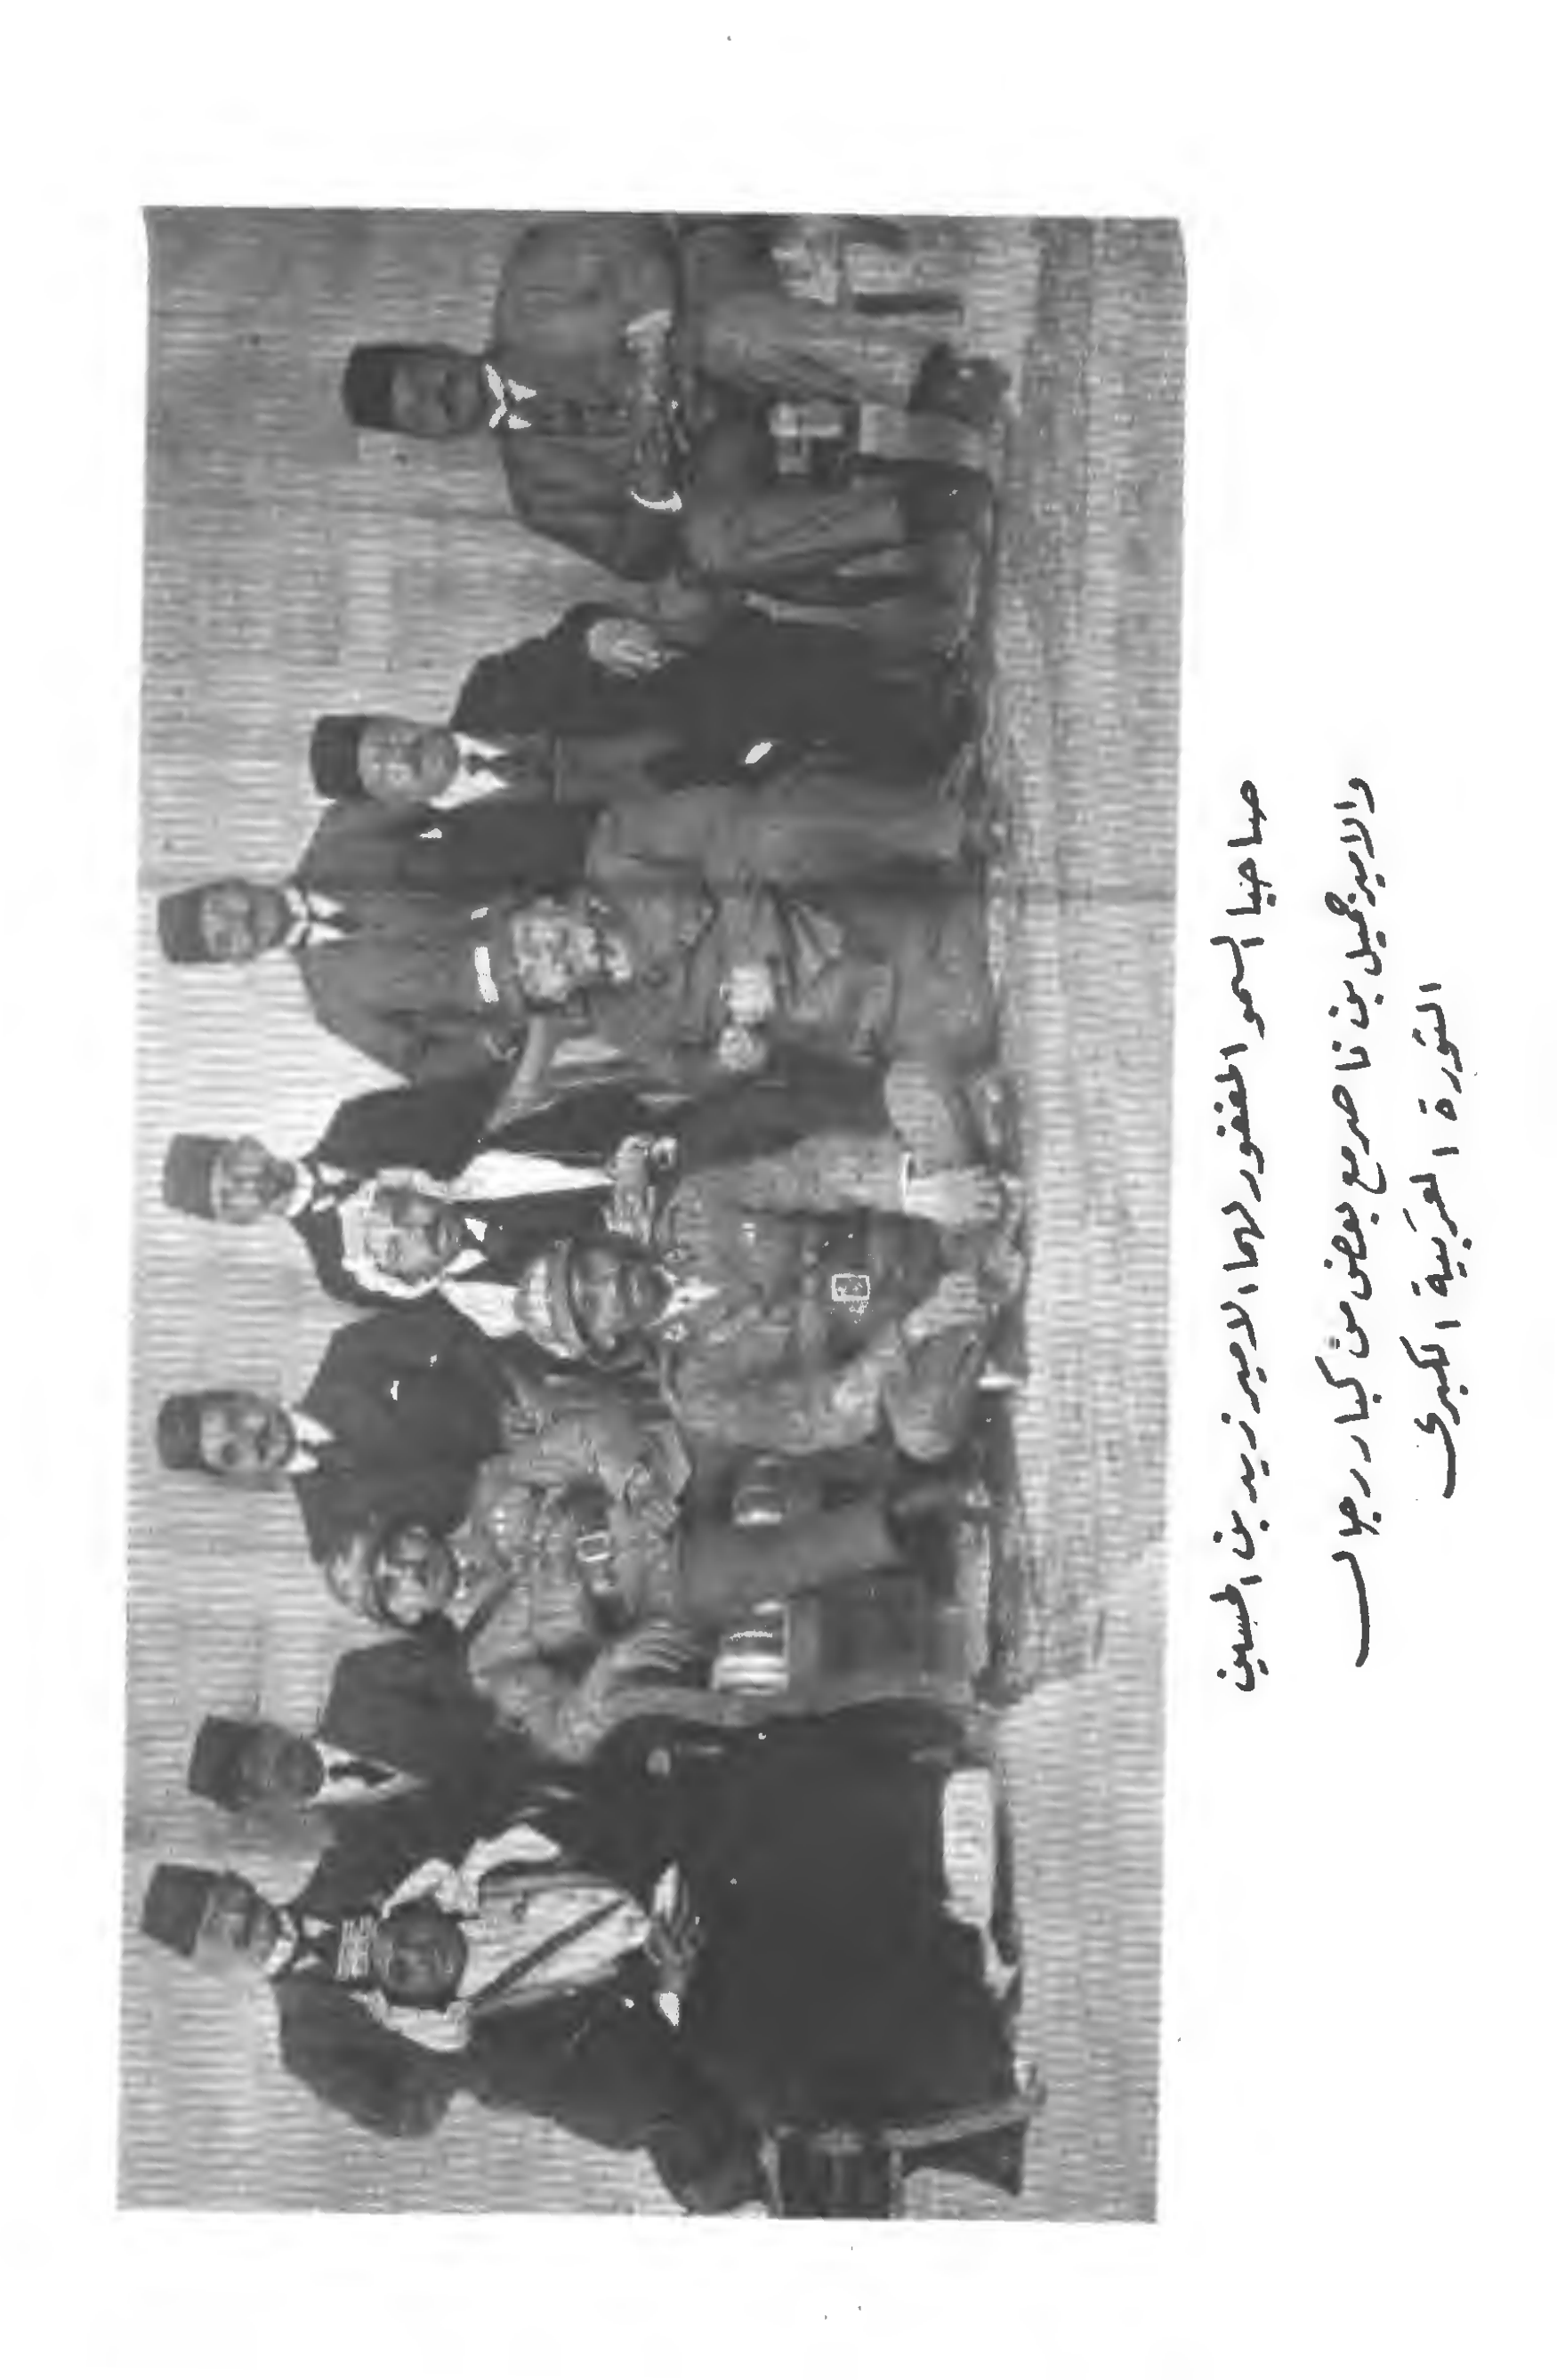 صاحبا السمو المغفور لهما الامير زيد بن الحسين
والامير جميل بن ناصر مع بعض من كبار رجال
الثورة العربية الكبرى